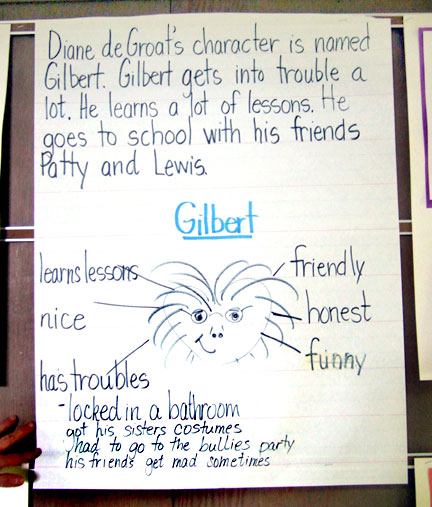 Diane deGroat's character is named
Gilbert. Gilbert gets into trouble a
lot. He learns a lot of lessons. He
goes to school with his friends
Patty and Lewis.
Gilbert
learns lessons
friendly
nice
honest
has troubles
funny
-locked in a bathroom
got his sisters costumes
had to go to the bullies party
his friends get mad sometimes